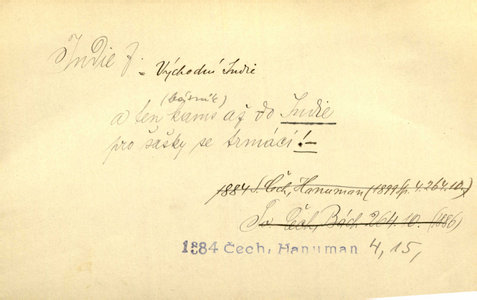 Indie f. = Východní Indie
(básník)
a ten kams až do Indie
pro šašky se trmácí! —
1884 S. Čech, Hanuman (1899) p. 4. 264.10.
To Čech, Bách. 264. 10. (1886)
1884 Čech, Hanuman 4, 15,